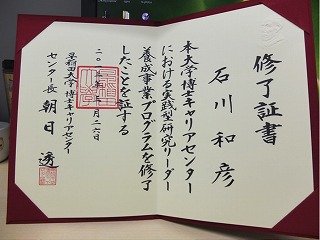 修了証書
石川和彦
本大学博士キャリアセンター
における実践型研究リーダー
養成事業プログラムを修了
したことを証する
月二六日
早稲田大学 博士キャリアセンター
センター長 朝日 透